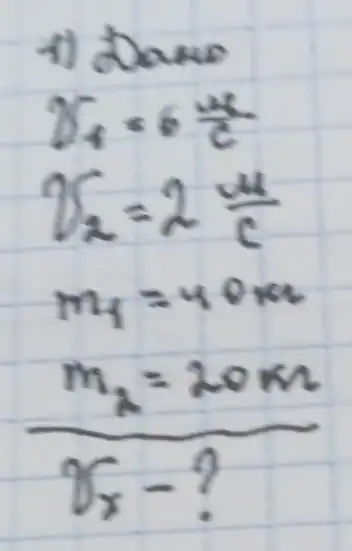 1) Дано
V₁ = 6 м/с
V₂ = 2 м/с
m₁ = 40 кг
m₂ = 20 кг
Vₓ - ?